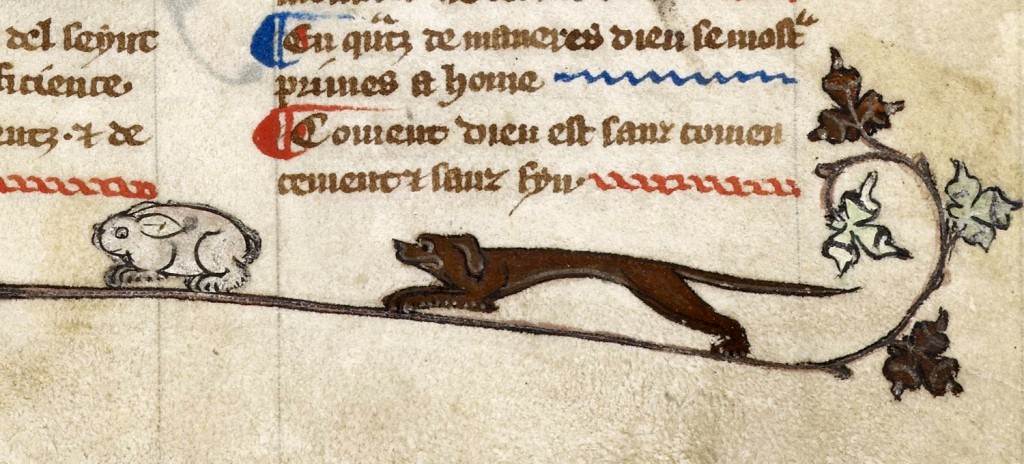 del seynt
ficience
entz · ⁊ de
En q̃ntz de maneres dieu se most
primes a home
Coment dieu est sanz comen
cement ⁊ sanz fyn